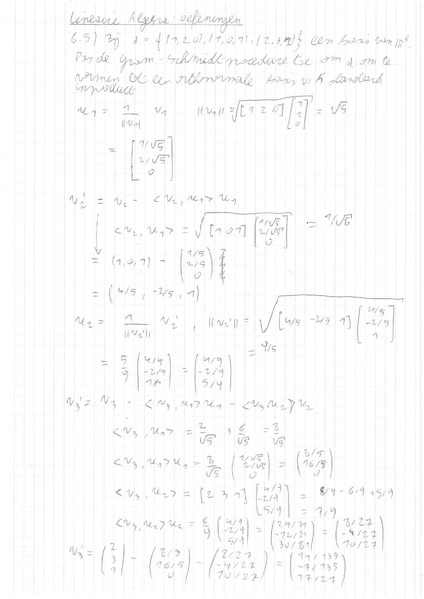 Lineaire Algebra: oefeningen
6.5) Zij 2 = {(1,2,0),(1,0,1),(2,3,1)} een basis van ℝ³.
Pas de Gram-Schmidt procedure toe om 2 om te
vormen tot een orthonormale basis v/h standaard
inproduct
u1 = 1/||v1|| v1 ||v1|| = √[1 2 0][1 2 0] = √5
= [1/√5 2/√5 0]
v2' = v2 - <v2, u1> u1
<v2, u1> = √[1 0 1][1/√5 2/√5 0] = 1/√5
= (1,0,1) - (1/5 2/5 0)
= (4/5, -2/5, 1)
u2 = 1/||v2'|| v2', ||v2'|| = √[4/5 -2/5 1][4/5 -2/5 1]
= 9/5
= 5/9 (4/5 -2/5 1) = (4/9 -2/9 5/9)
v3' = v3 - <v3, u1> u1 - <v3, u2> v2
<v3, u1> = 2/√5 + 6/√5 = 8/√5
<v3, u1> u1 = 8/√5 (1/√5 2/√5 0) = (8/5 16/5 0)
<v3, u2> = [2 3 1][4/9 -2/9 5/9] = 8/9 - 6/9 + 5/9
= 7/9
<v3, u2> u2 = 6/9 (4/9 -2/9 5/9) = (24/81 -12/81 30/81) = (8/27 -4/27 10/27)
v3' = (2 3 1) - (8/5 16/5 0) - (8/27 -4/27 10/27) = (14/135 -7/135 17/27)